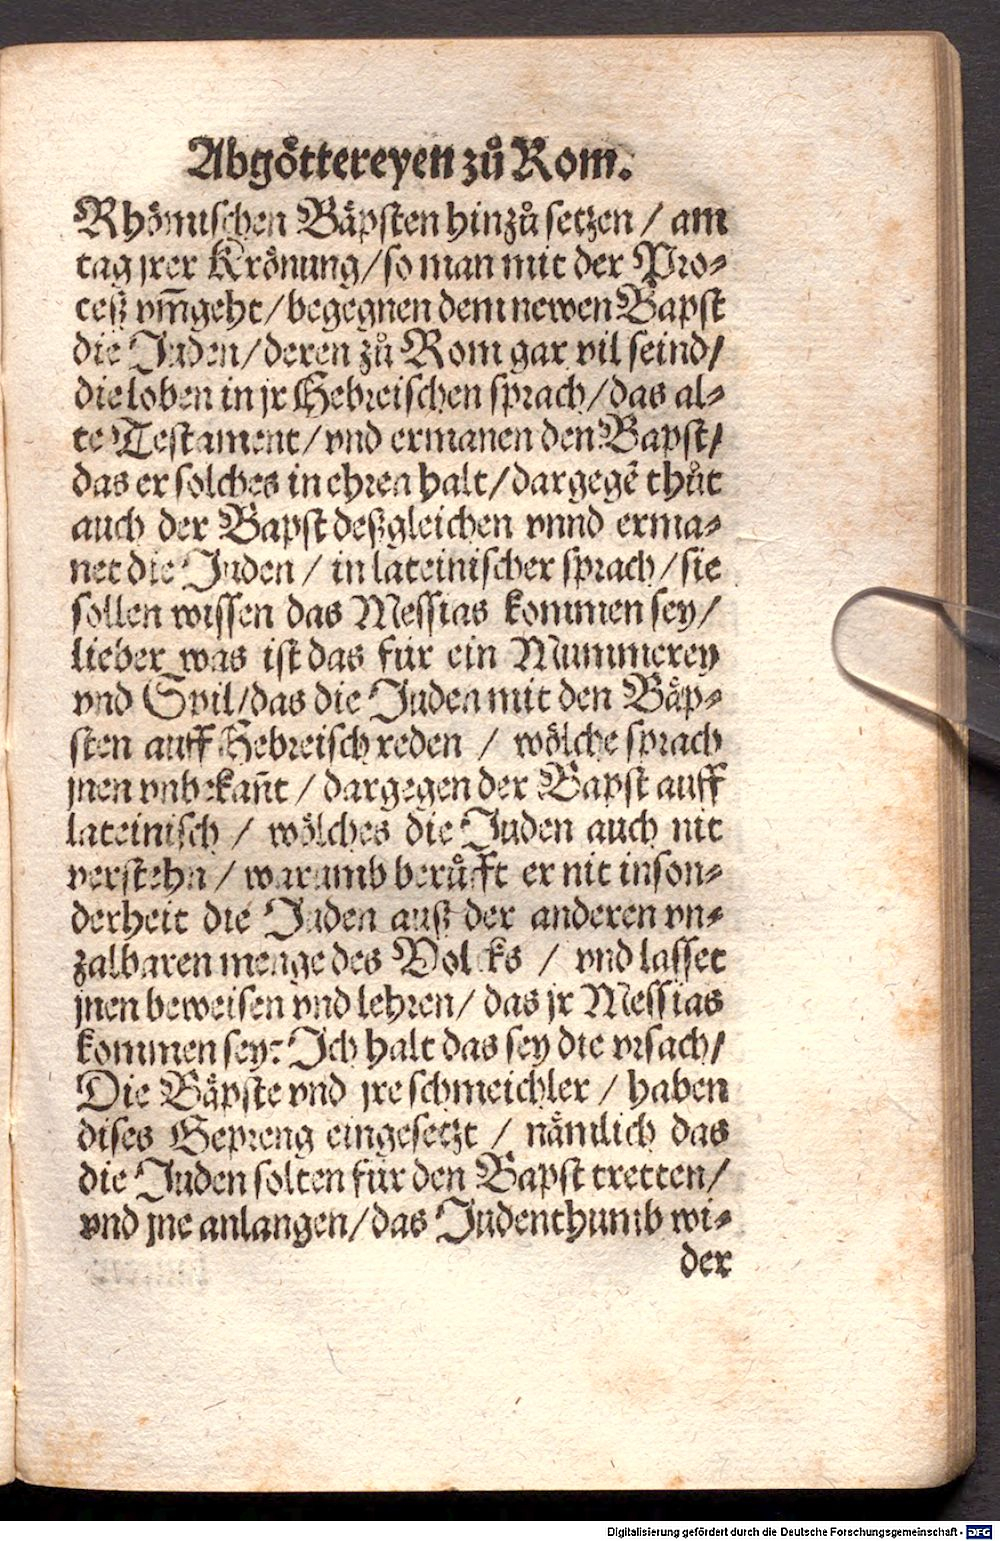 Abgöttereyen zů Rom.
Rhömischen Bäpsten hinzů setzen / am
tag jrer Krönung / so man mit der Pro⸗
ceß vm̄geht / begegnen dem newen Bapst
die Juden / deren zů Rom gar vil seind /
die loben in jr Hebreischen sprach / das al⸗
te Testament / vnd ermanen den Bapst /
das er solches in ehren halt / dargegē thůt
auch der Bapst deßgleichen vnnd erma⸗
net die Juden / in lateinischer sprach / sie
sollen wissen das Messias kommen sey /
lieber was ist das für ein Mummerey
vnd Spil / das die Juden mit den Bäp⸗
sten auff Hebreisch reden / wölche sprach
jnen vnbekañt / dargegen der Bapst auff
lateinisch / wölches die Juden auch nit
verstehn / warumb berůfft er nit inson⸗
derheit die Juden auß der anderen vn⸗
zalbaren menge des Volcks / vnd lasset
jnen beweisen vnd lehren / das jr Messias
kommen sey: Ich halt das sey die vrsach /
Die Bäpste vnd jre schmeichler / haben
dises Gepreng eingesetzt / nämlich das
die Juden solten für den Bapst tretten /
vnd jne anlangen / das Judenthumb wi⸗
der
Digitalisierung gefördert durch die Deutsche Forschungsgemeinschaft - DFG